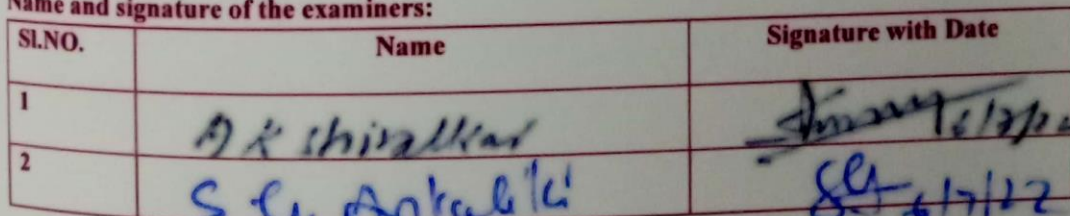 Name and signature of the examiners:
Sl.NO. Name Signature with Date
1 A K Shiralkar
2 S G Ankaliki 6/7/22